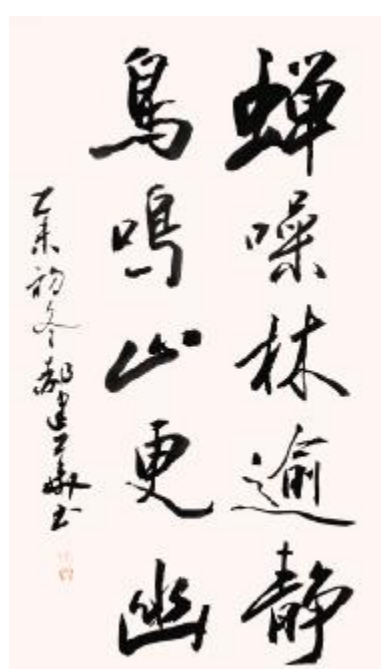 蝉噪林逾静
鳥鳴山更幽
乙未初冬郝建书